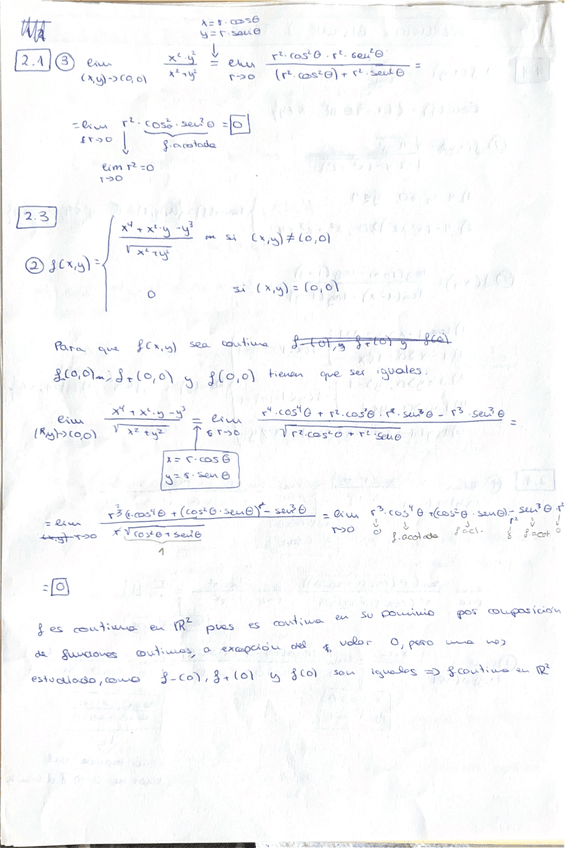 x = r·cosθ
y = r·senθ
2.1 ③ lim (x,y)→(0,0) x²·y² / x²+y² = lim r→0 r²·cos²θ · r²·sen²θ / (r²·cos²θ) + r²·sen²θ =
= lim r→0 r²·cos²θ·sen²θ = 0
f. acotada
lim r→0 r² = 0
2.3
② f(x,y) = { x⁴ + x²·y - y³ / √x²+y² si (x,y) ≠ (0,0)
0 si (x,y) = (0,0)
Para que f(x,y) sea continua f-(0), y f+(0) y f(0)
f-(0,0), f+(0,0) y f(0,0) tienen que ser iguales.
lim (x,y)→(0,0) x⁴ + x²·y - y³ / √x²+y² = lim r→0 r⁴·cos⁴θ + r²·cos²θ · r·senθ - r³·sen³θ / √r²cos²θ + r²·senθ =
x = r·cosθ
y = r·senθ
= lim r→0 r³(r·cos⁴θ + (cos²θ·senθ) - sen³θ / r√cos²θ + sen²θ = lim r→0 r³·cos⁴θ + (cos²θ·senθ) - sen³θ·r²
1 0 f. acotada
= 0
f es continua en ℝ² pues es continua en su dominio por composición
de funciones continuas, a excepción del valor 0, pero una vez
estudiado, como f-(0), f+(0) y f(0) son iguales ⇒ f continua en ℝ²